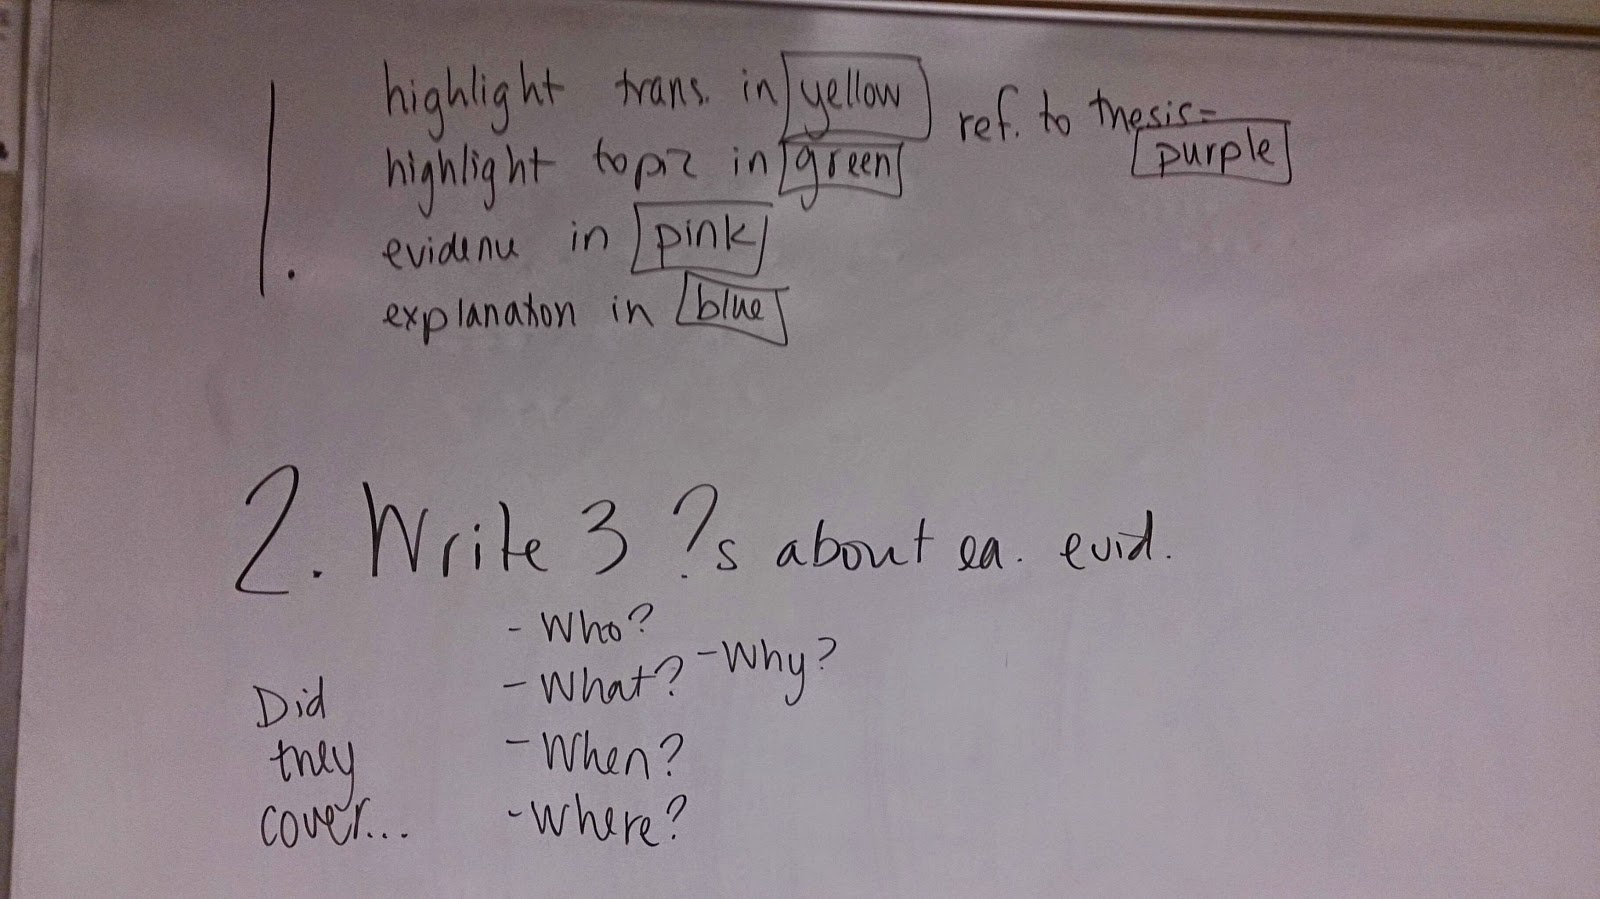 1.
highlight trans. in yellow
highlight topic in green
evidence in pink
explanation in blue
ref. to thesis=
purple
2. Write 3 ?s about ea. evid.
Did
they
cover...
- Who?
- What?
- When?
- Where?
- Why?